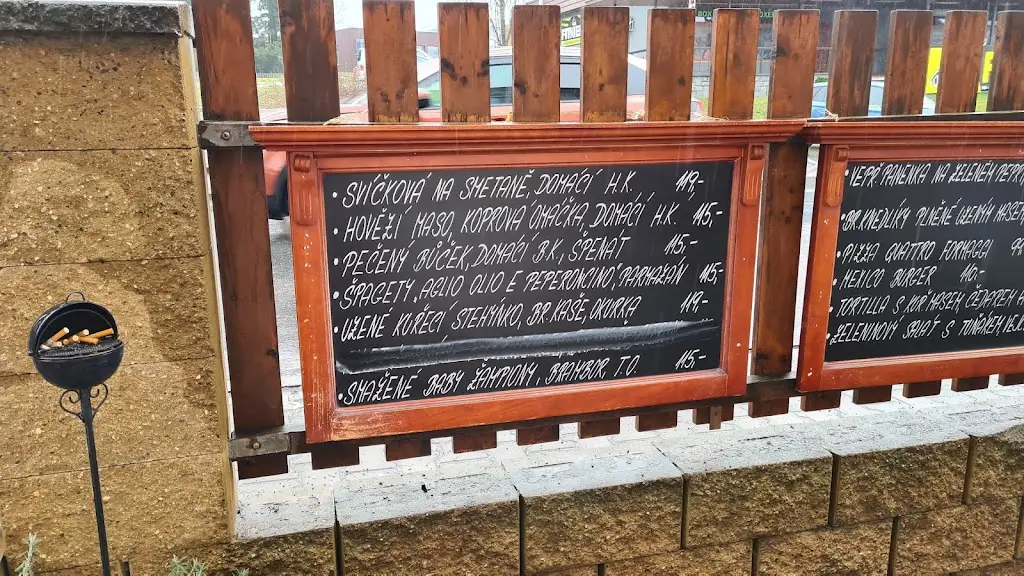 • SVÍČKOVÁ NA SMETANĚ, DOMÁCÍ H.K. 119,-
• HOVĚZÍ MASO, KOPROVÁ OMÁČKA, DOMÁCÍ H.K. 115,-
• PEČENÝ BŮČEK, DOMÁCÍ B.K., ŠPENÁT 115,-
• ŠPAGETY „AGLIO OLIO E PEPERONCINO" PARMAZÁN 115,-
• UZENÉ KUŘECÍ STEHÝNKO, BR. KAŠE, OKURKA 119,-
• SMAŽENÉ BABY ŽAMPIONY, BRAMBOR, T.O. 115,-
• VEPŘ. PANENKA NA ZELENÉM
• BR. KNEDLÍKY PLNĚNÉ UZENÝM
• PIZZA QUATTRO FORMAGGI
• MEXICO BURGER
• TORTILLA S KUŘ. MASEM
• ZELENINOVÝ SALÁT S TUŇÁKEM